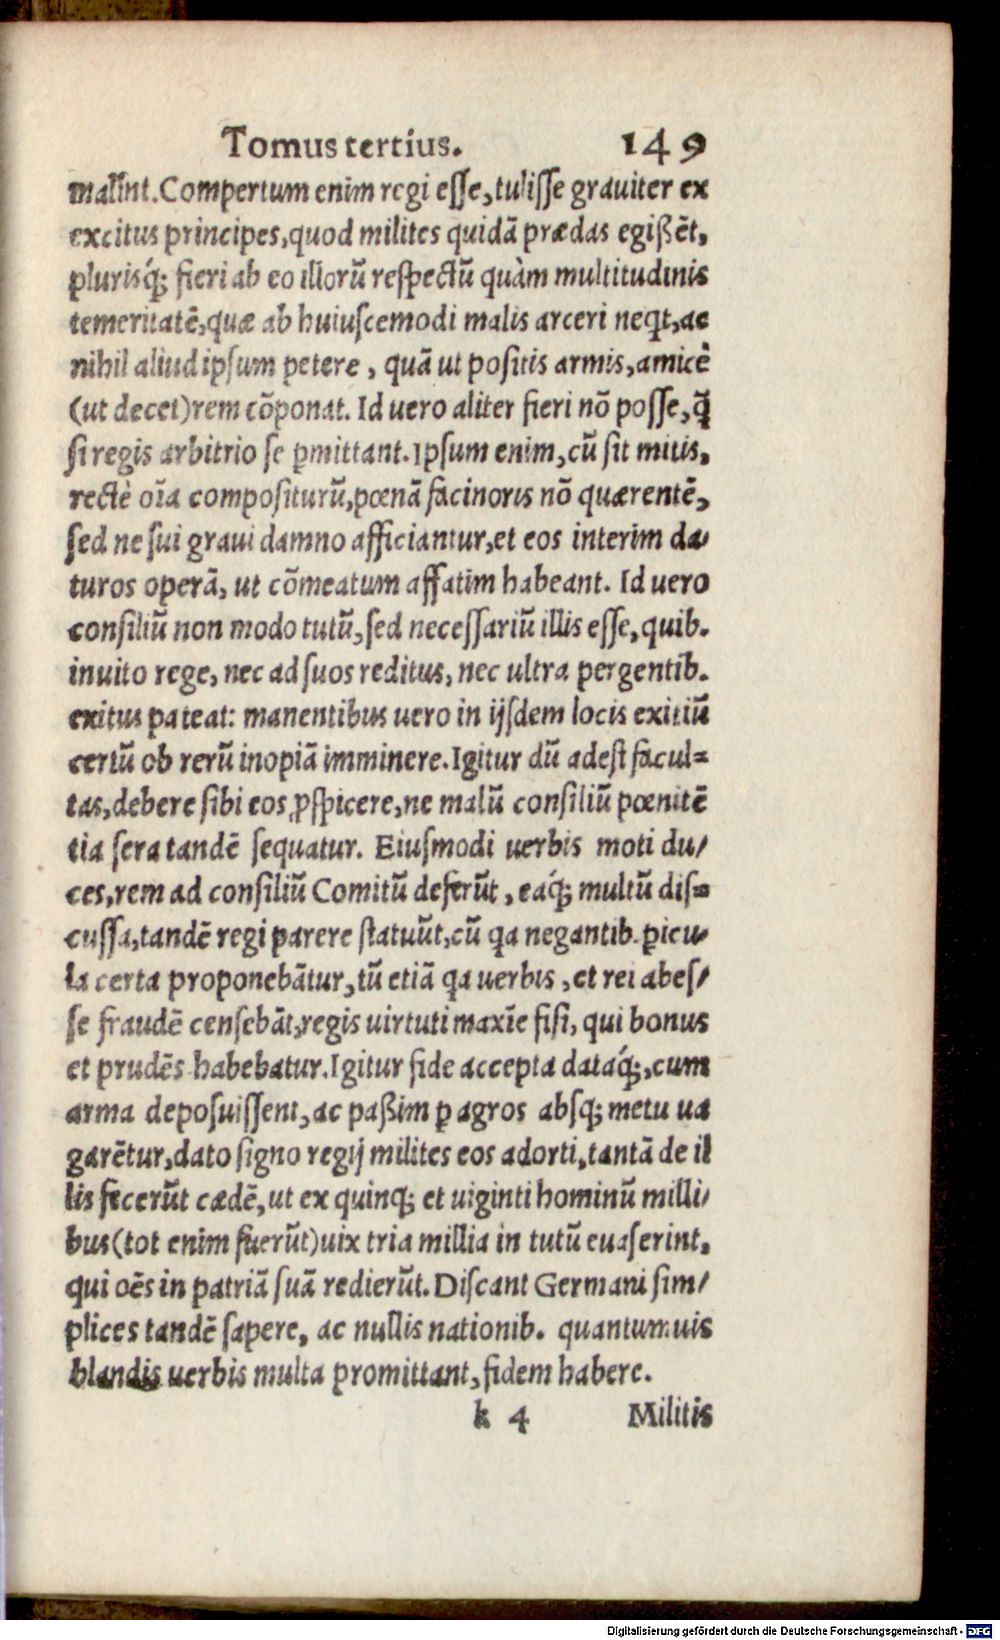 Tomus tertius. 149
malint. Compertum enim regi esse, tulisse grauiter ex
excitus principes, quod milites quidã prædas egißẽt,
plurisq́; fieri ab eo illorũ respectũ quàm multitudinis
temeritatẽ, quæ ab huiuscemodi malis arceri neq̃t, ac
nihil aliud ipsum petere, quã ut positis armis, amicè
(ut decet) rem cõponat. Id uero aliter fieri nõ posse, q̃
si regis arbitrio se ꝑmittant. Ipsum enim, cũ sit mitis,
rectè oĩa compositurũ, pœnã facinoris nõ quærentẽ,
sed ne sui graui damno afficiantur, et eos interim da-
turos operã, ut cõmeatum affatim habeant. Id uero
consiliũ non modo tutũ, sed necessariũ illis esse, quib.
inuito rege, nec ad suos reditus, nec ultra pergentib.
exitus pateat: manentibus uero in ijsdem locis exitiũ
certũ ob rerũ inopiã imminere. Igitur dũ adest facul-
tas, debere sibi eos ꝓspicere, ne malũ consiliũ pœnitẽ
tia sera tandẽ sequatur. Eiusmodi uerbis moti du-
ces, rem ad consiliũ Comitũ deferũt, eaq́; multũ dis-
cussa, tandẽ regi parere statuũt, cũ qa negantib. ꝑicu-
la certa proponebãtur, tũ etiã qa uerbis, et rei abes-
se fraudẽ censebãt, regis uirtuti maxĩe fisi, qui bonus
et prudẽs habebatur. Igitur fide accepta dataq́;, cum
arma deposuissent, ac paßim ꝑ agros absq; metu ua
garẽtur, dato signo regij milites eos adorti, tantã de il
lis fecerũt cædẽ, ut ex quinq; et uiginti hominũ milli-
bus (tot enim fuerũt) uix tria millia in tutũ euaserint,
qui oẽs in patriã suã redierũt. Discant Germani sim-
plices tandẽ sapere, ac nullis nationib. quantumuis
blandis uerbis multa promittant, fidem habere.
k 4 Militis
Digitalisierung gefördert durch die Deutsche Forschungsgemeinschaft - DFG